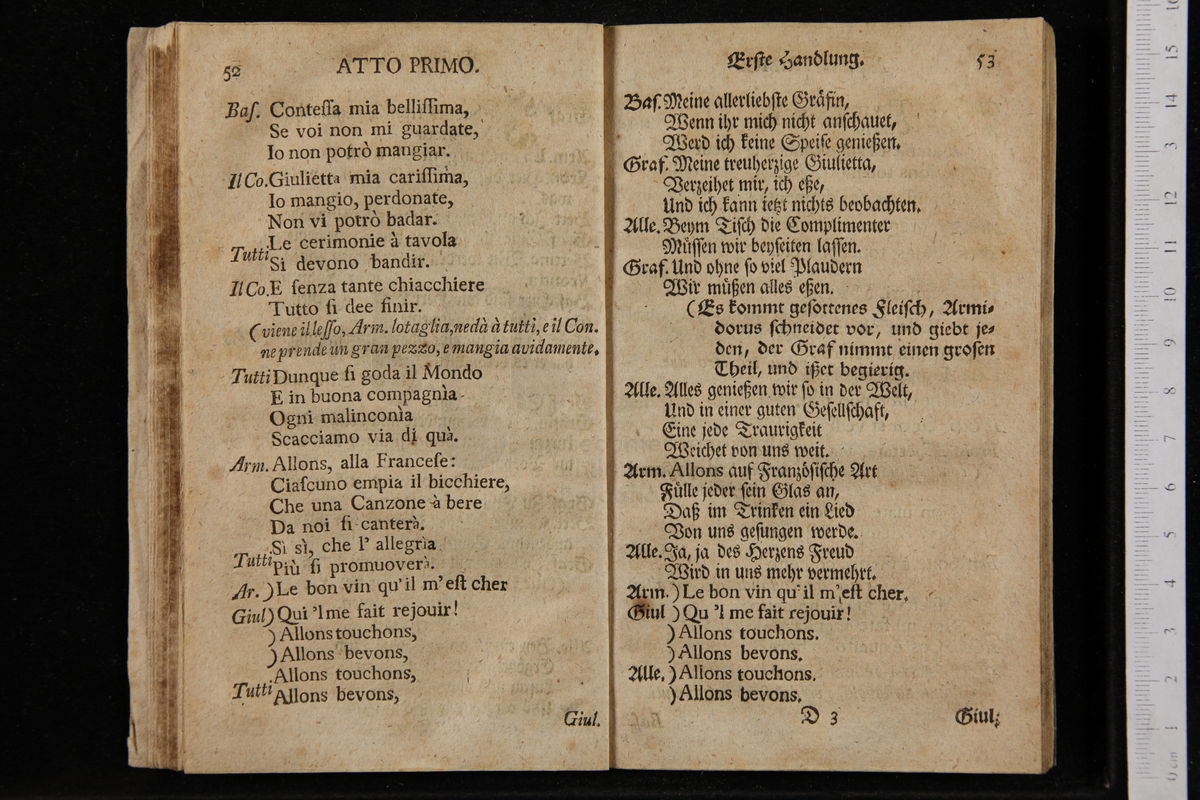 52
ATTO PRIMO.
Baſ. Conteſſa mia belliſſima,
Se voi non mi guardate,
Io non potrò mangiar.
Il Co. Giulietta mia cariſſima,
Io mangio, perdonate,
Non vi potrò badar.
Tutti Le cerimonie à tavola
Si devono bandir.
Il Co. E ſenza tante chiacchiere
Tutto ſi dee finir.
(viene il leſſo, Arm. lo taglia, ne dà à tutti, e il Con.
ne prende un gran pezzo, e mangia avidamente.
Tutti Dunque ſi goda il Mondo
E in buona compagnìa
Ogni malinconìa
Scacciamo via di quà.
Arm. Allons, alla Franceſe:
Ciaſcuno empia il bicchiere,
Che una Canzone à bere
Da noi ſi canterà.
Tutti Sì sì, che l' allegrìa
Più ſi promuoverà.
Ar. ) Le bon vin qu'il m'eſt cher
Giul) Qui 'l me fait rejouir!
) Allons touchons,
) Allons bevons,
Tutti Allons touchons,
Allons bevons,
Giul.
Erſte Handlung.
53
Baſ. Meine allerliebſte Gräfin,
Wenn ihr mich nicht anſchauet,
Werd ich keine Speiſe genießen.
Graf. Meine treuherzige Giulietta,
Verzeihet mir, ich eße,
Und ich kann ietzt nichts beobachten.
Alle. Beym Tiſch die Complimenter
Müſſen wir beyſeiten laſſen.
Graf. Und ohne ſo viel Plaudern
Wir müßen alles eßen.
(Es kommt geſottenes Fleiſch, Armi-
dorus ſchneidet vor, und giebt je-
den, der Graf nimmt einen groſen
Theil, und ißet begierig.
Alle. Alles genießen wir ſo in der Welt,
Und in einer guten Geſellſchaft,
Eine jede Traurigkeit
Weichet von uns weit.
Arm. Allons auf Franzöſiſche Art
Fülle jeder ſein Glas an,
Daß im Trinken ein Lied
Von uns geſungen werde.
Alle. Ja, ja des Herzens Freud
Wird in uns mehr vermehrt.
Arm. ) Le bon vin qu'il m'eſt cher.
Giul ) Qu 'l me fait rejouir!
) Allons touchons.
) Allons bevons.
Alle. ) Allons touchons.
) Allons bevons.
D 3
Giul: